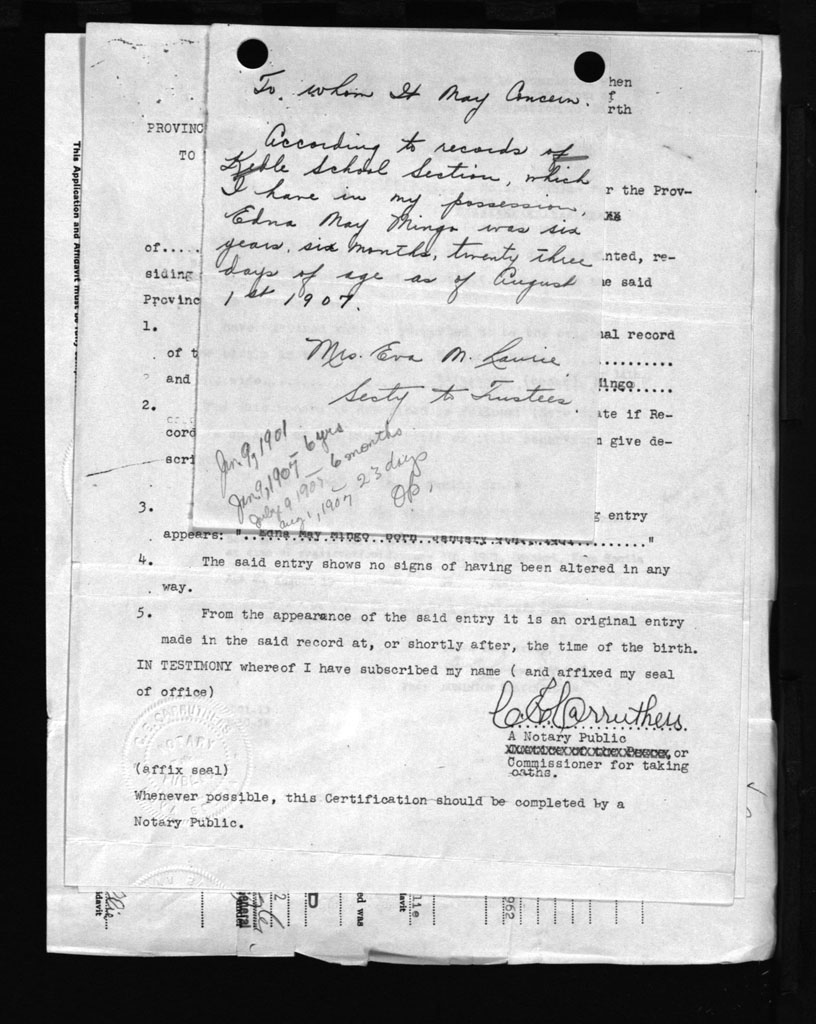 To. whom It May Concern.
According to records of
Keble School Section, which
I have in my possession,
Edna May Mingo was six
years, six months, twenty three
days of age as of August
1st 1907.
Mrs. Eva M. Laurie.
Secty to Trustees.
Jan. 9, 1901
Jan 9, 1907 - 6 yrs
July 9 1907 - 6 months
Aug 1, 1907 - 23 days
hen
f
rth
PROVINC
TO
r the Prov-
of.....
nted, re-
siding
e said
Provinc
1.
al record
of t
and
Mingo
2.
ate if Re-
cord
n give de-
scri
3.
g entry
appears: "..Edna May Mingo..born..January
4. The said entry shows no signs of having been altered in any
way.
5. From the appearance of the said entry it is an original entry
made in the said record at, or shortly after, the time of the birth.
IN TESTIMONY whereof I have subscribed my name ( and affixed my seal
of office)
Carruthers
A Notary Public
or
Commissioner for taking
oaths.
(affix seal)
Whenever possible, this Certification should be completed by a
Notary Public.
This Application and Affidavit must be
NOTARY
PUBLIC
idavit
General
D
ed was
lie
idavit
962